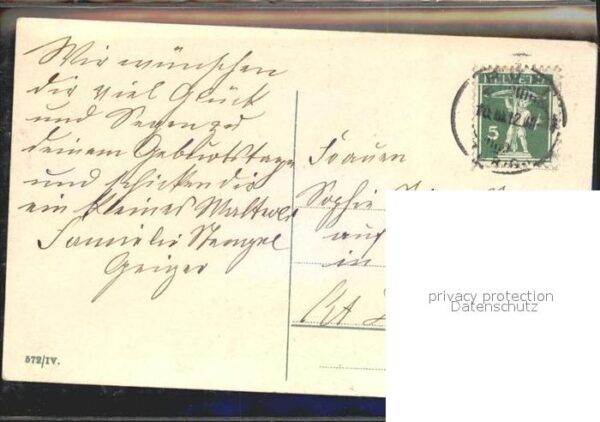 Wir wünschen
dir viel Glück
und Segen zu
deinem Geburtstage
und schicken dir
ein kleines
Familie Stengel
Geiger
572/IV.
HELVETIA
5
Frauen
Sophie
auf
in
privacy protection
Datenschutz